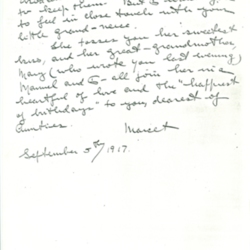 to keep them. But I want you
to feel in close touch with your
little grand-niece.
She tosses you her sweetest
kiss, and her great-grandmother,
Mary (who wrote you last evening)
Manuel and I - all join her in a
heartful of love and the "happiest
of birthdays" to you, dearest of
Aunties.
Marcet
September 5th, 1917.